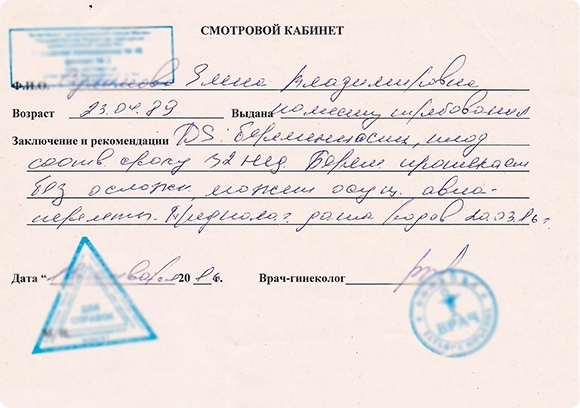 СМОТРОВОЙ КАБИНЕТ
Ф.И.О. Елена Владимировна
Возраст 23.04.89 Выдана по месту требования
Заключение и рекомендации DS: Беременность, плод
соотв. сроку 32 нед. Берем. протекает
без осложн., может осущ. авиа-
перелеты. Предполаг. дата родов 20.03.16г.
Дата “ января 20 16 г. Врач-гинеколог
ДЛЯ
СПРАВОК
М.П.
ВРАЧ